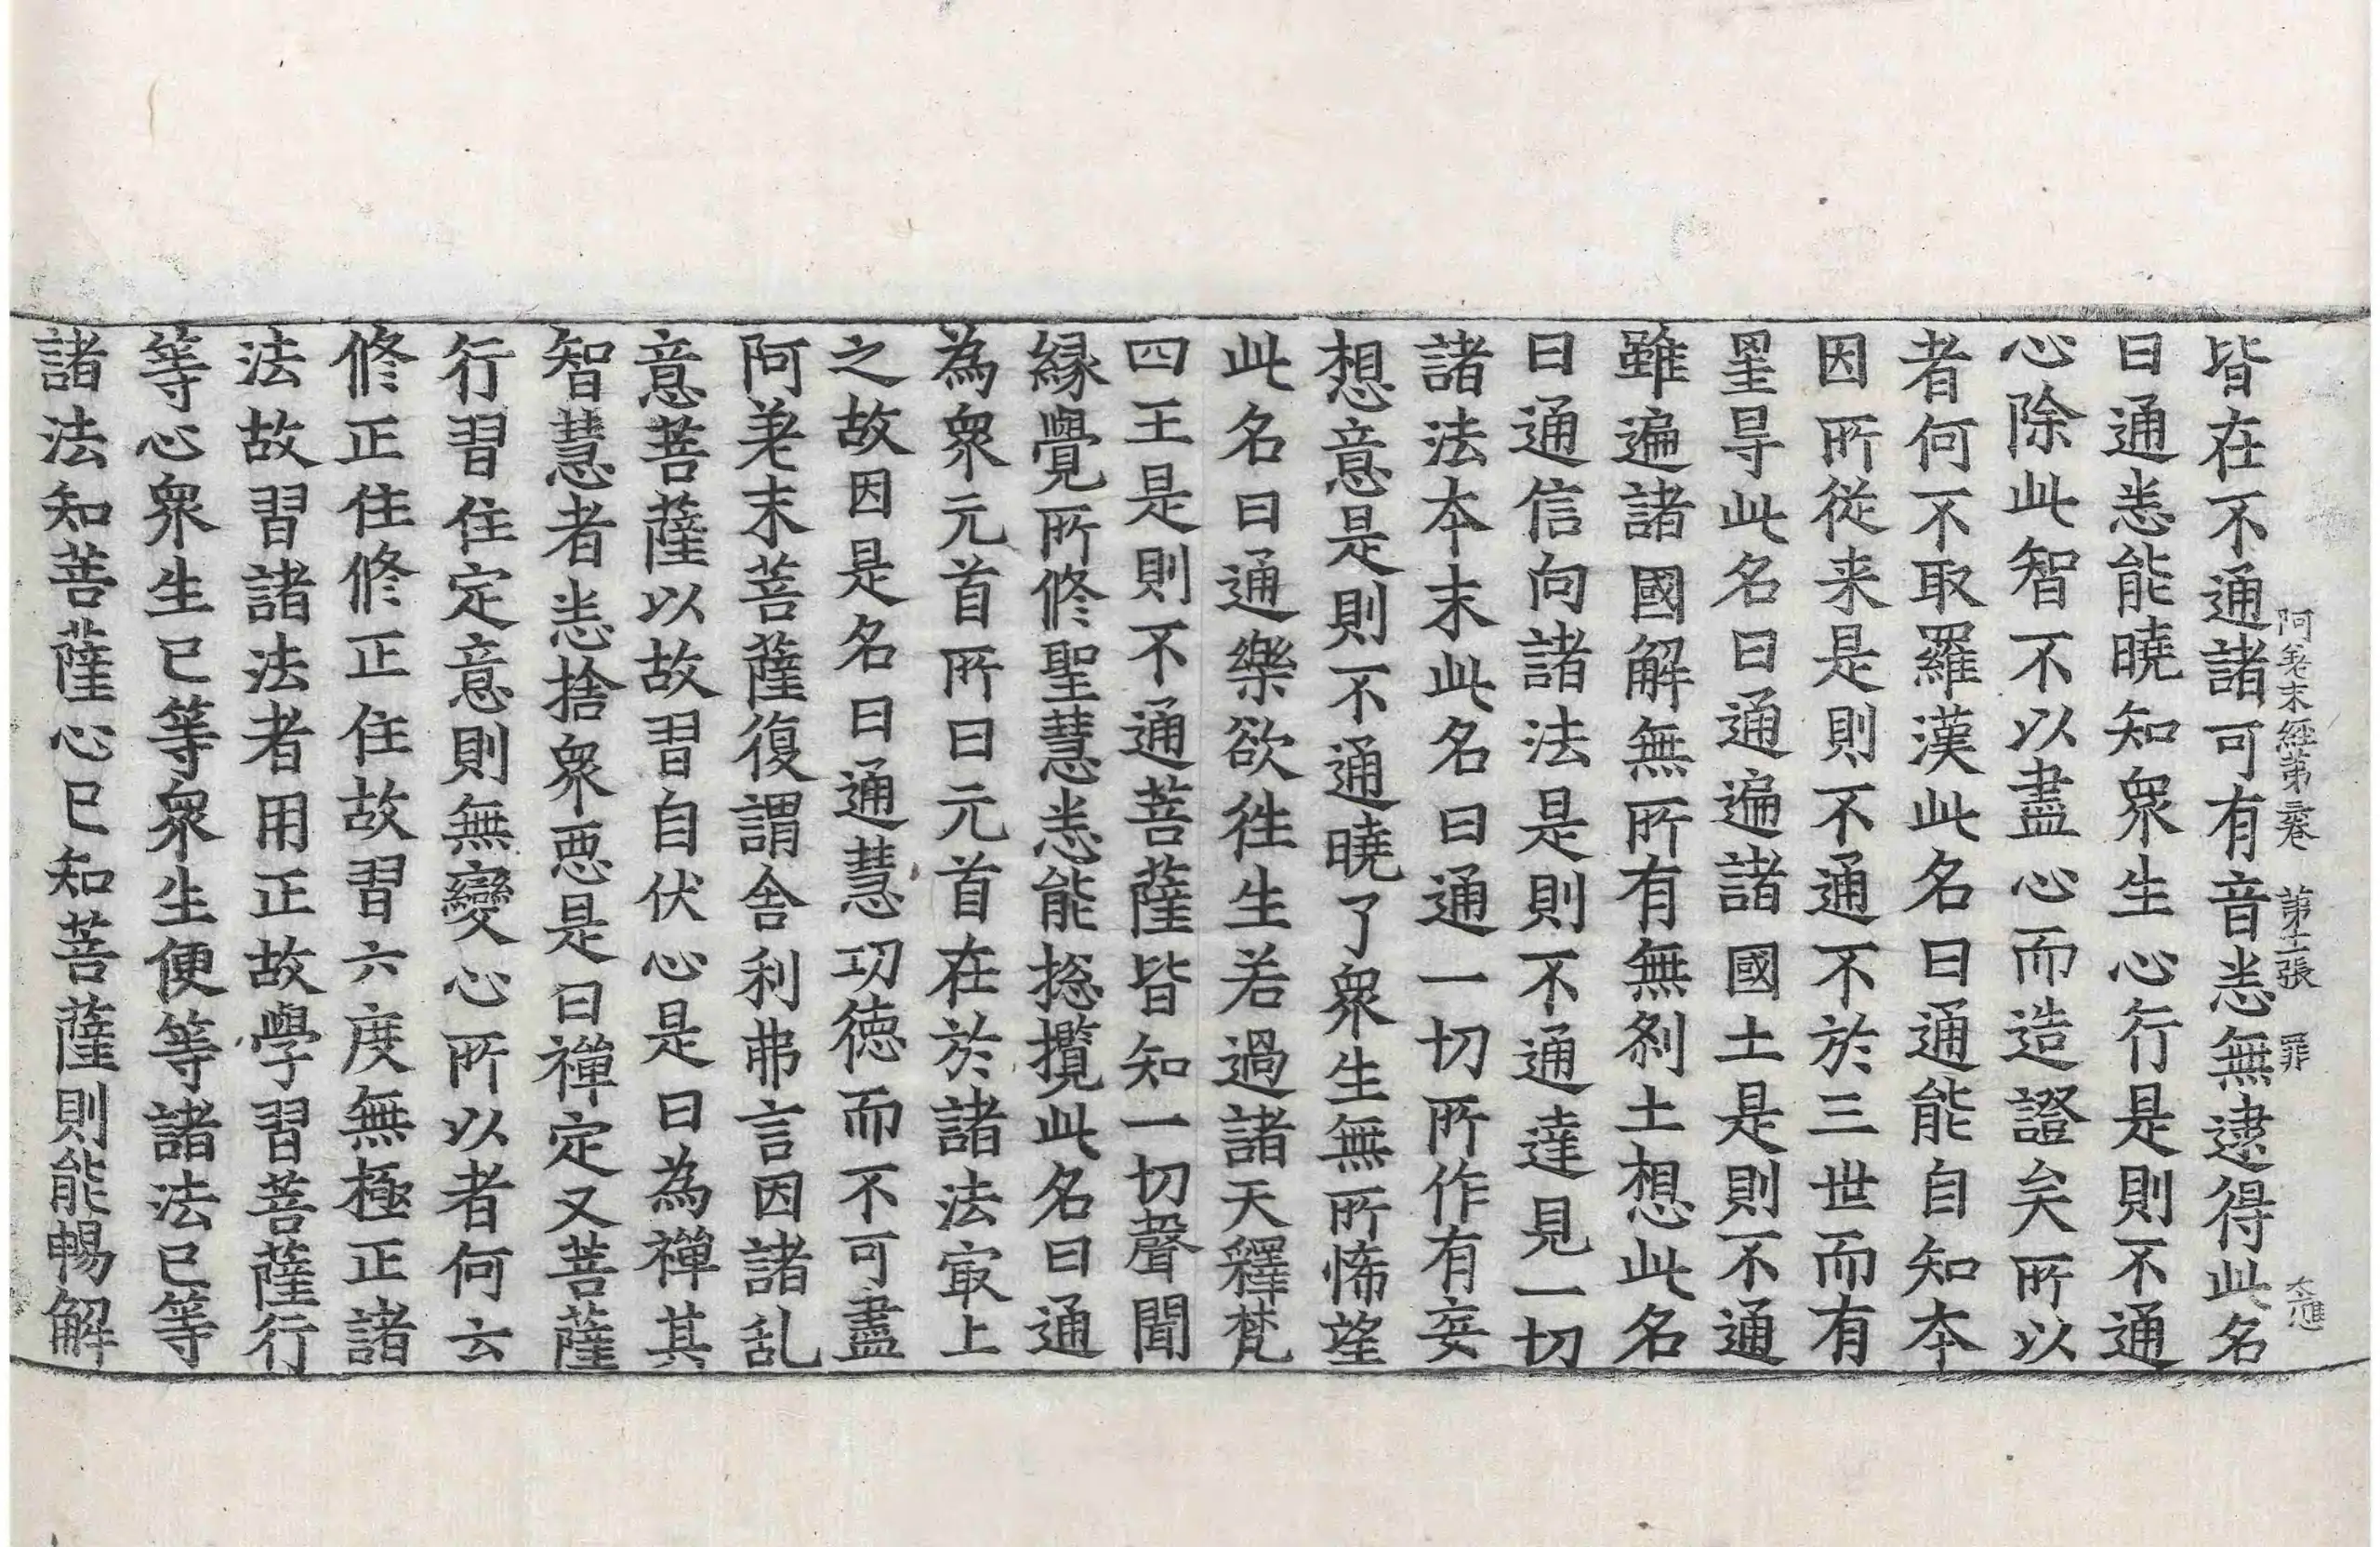 阿差末經第三卷　第十二張　罪　大進
皆在不通諸可有音悉無逮得此名
曰通悉能曉知衆生心行是則不通
心除此智不以盡心而造證矣所以
者何不取羅漢此名曰通能自知本
因所從来是則不通不於三世而有
罣㝵此名曰通遍諸國土是則不通
雖遍諸國解無所有無刹土想此名
曰通信向諸法是則不通達見一切
諸法本末此名曰通一切所作有妄
想意是則不通曉了衆生無所悕望
此名曰通樂欲徃生若過諸天釋梵
四王是則不通菩薩皆知一切聲聞
縁覺所修聖慧悉能捴攬此名曰通
為衆元首所曰元首在於諸法㝡上
之故因是名曰通慧功徳而不可盡
阿差末菩薩復謂舎利弗言因諸乱
意菩薩以故習自伏心是曰為禪其
智慧者悉捨衆悪是曰禪定又菩薩
行習住定意則無變心所以者何云
修正住修正住故習六度無極正諸
法故習諸法者用正故學習菩薩行
等心衆生已等衆生便等諸法已等
諸法知菩薩心已知菩薩則能暢解